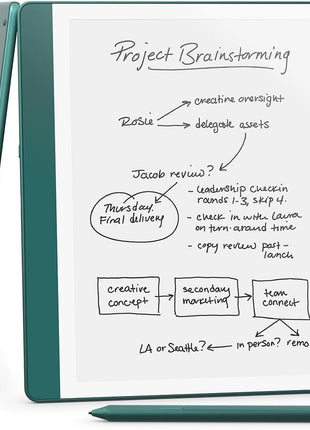 Project Brainstorming
creative oversight
Rosie
delegate assets
Jacob review?
- leadership checkin
rounds 1-3, skip 4.
Thursday
Final delivery
- check in with Laura
on turn-around time
- copy review post-
launch
creative
concept
secondary
marketing
team
connect
LA or Seattle?
in person?
remo